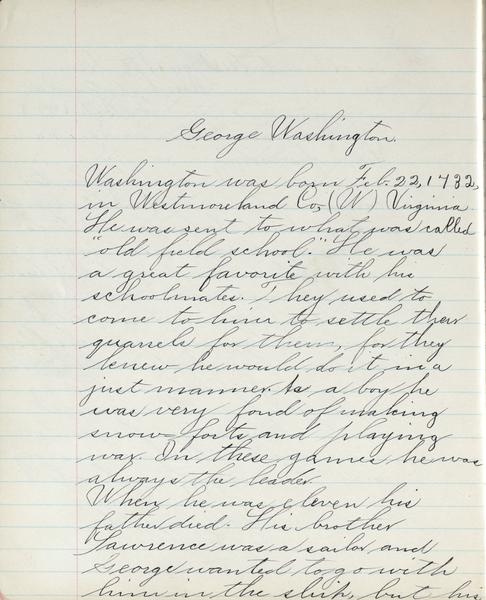 George Washington.
Washington was born Feb. 22, 1732,
in Westmoreland Co, (W) Virginia
He was sent to what was called
"old field school." He was
a great favorite with his
schoolmates. They used to
come to him to settle their
quarrels for them, for they
knew he would do it in a
just manner. As a boy he
was very fond of making
snow-forts and playing
war. In these games he was
always the leader
When he was eleven his
father died. His brother
Lawrence was a sailor and
George wanted to go with
him in the ship, but his